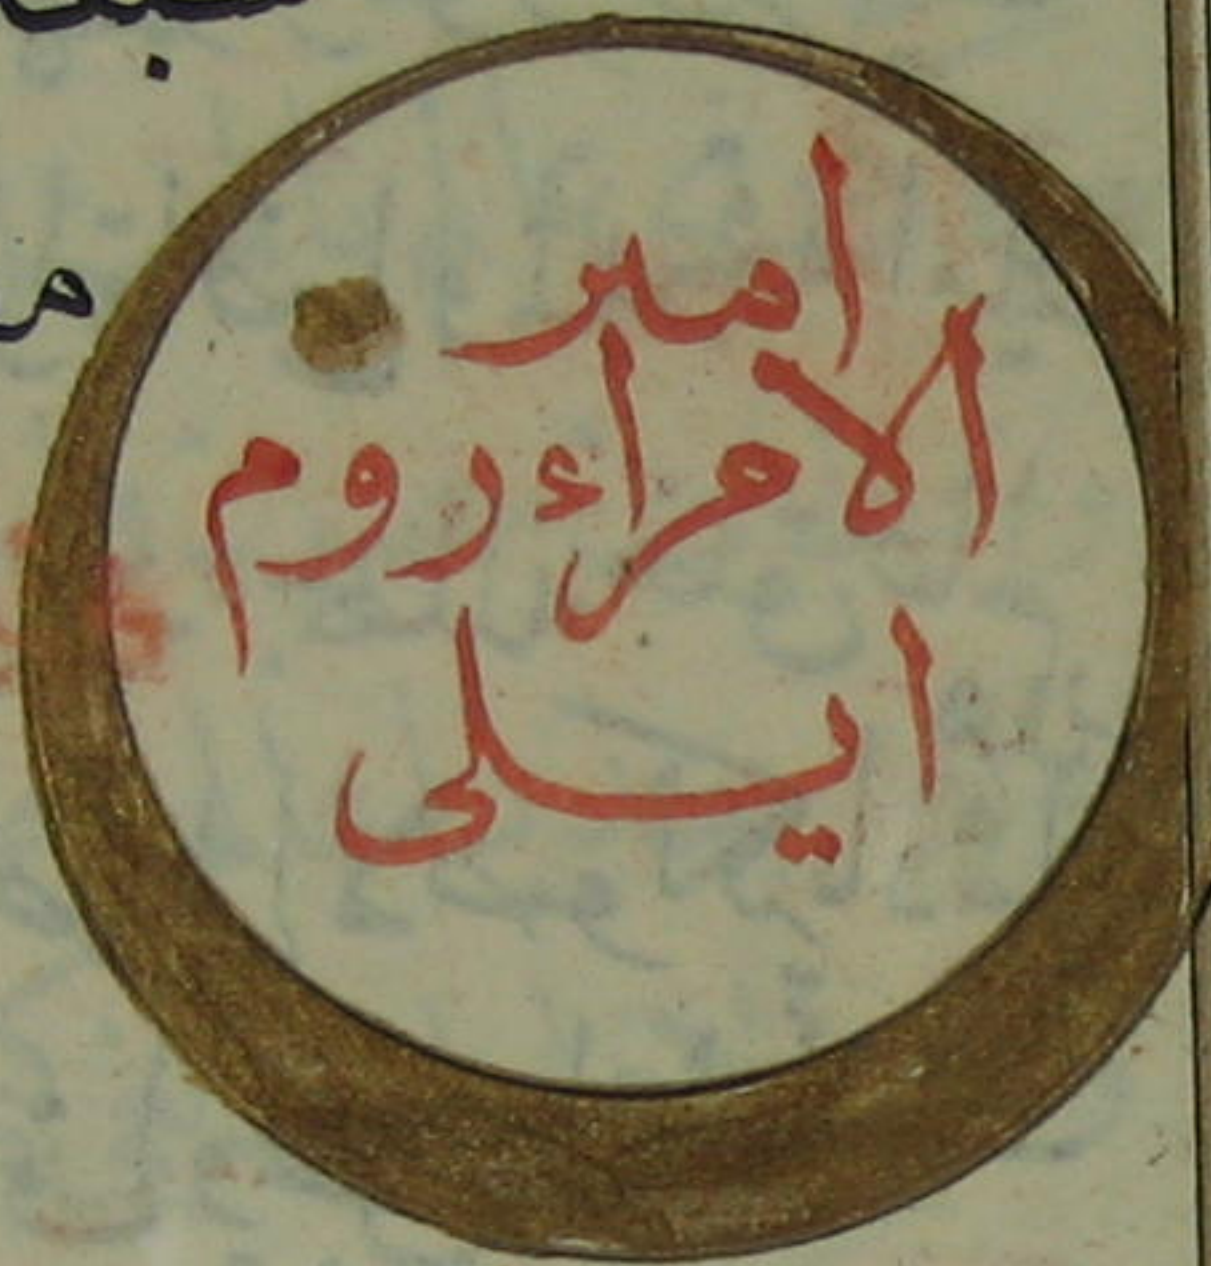 امير
الامراء روم
ايلى